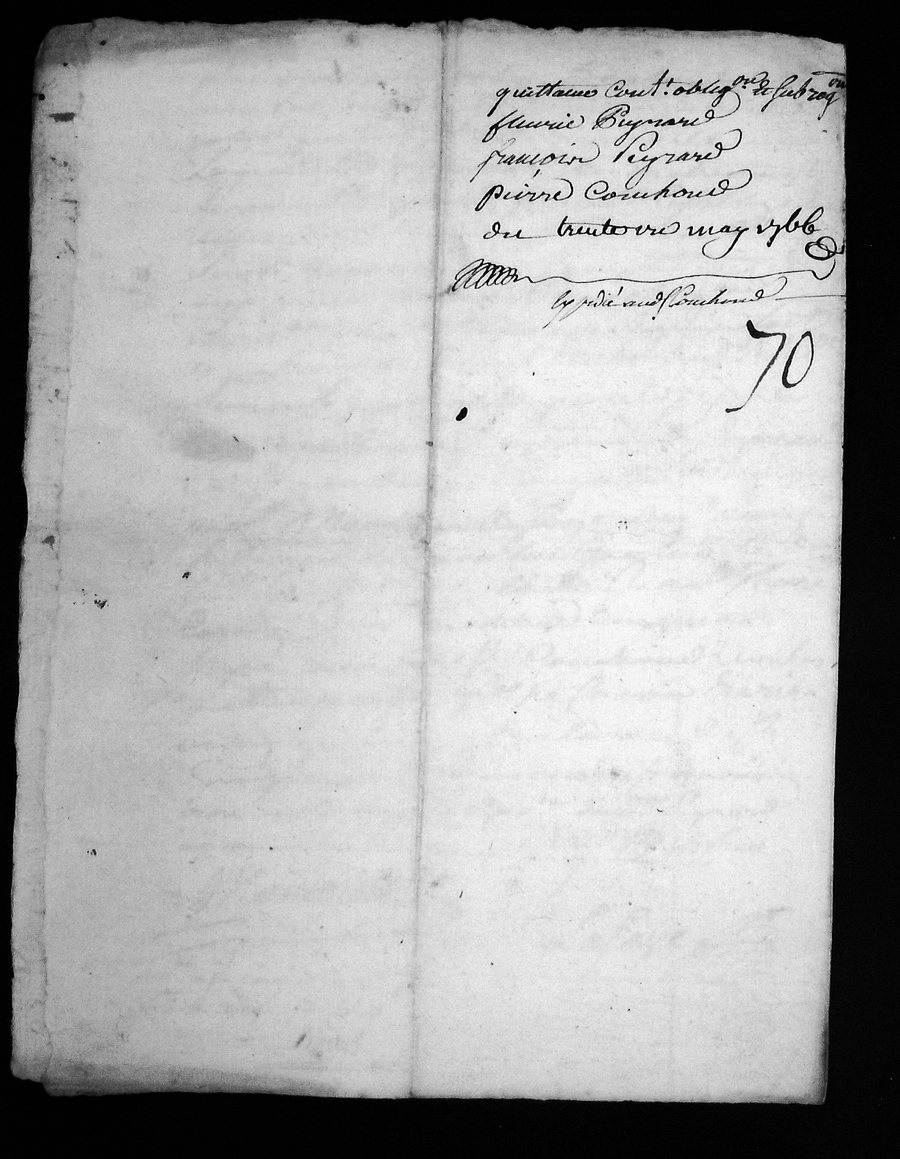 quittance cont.t obligon & subrogon
fleurie Peyrard
françoise Peyrard
pierre Couhond
du trente un may 1766
expedié aud Couhond
70